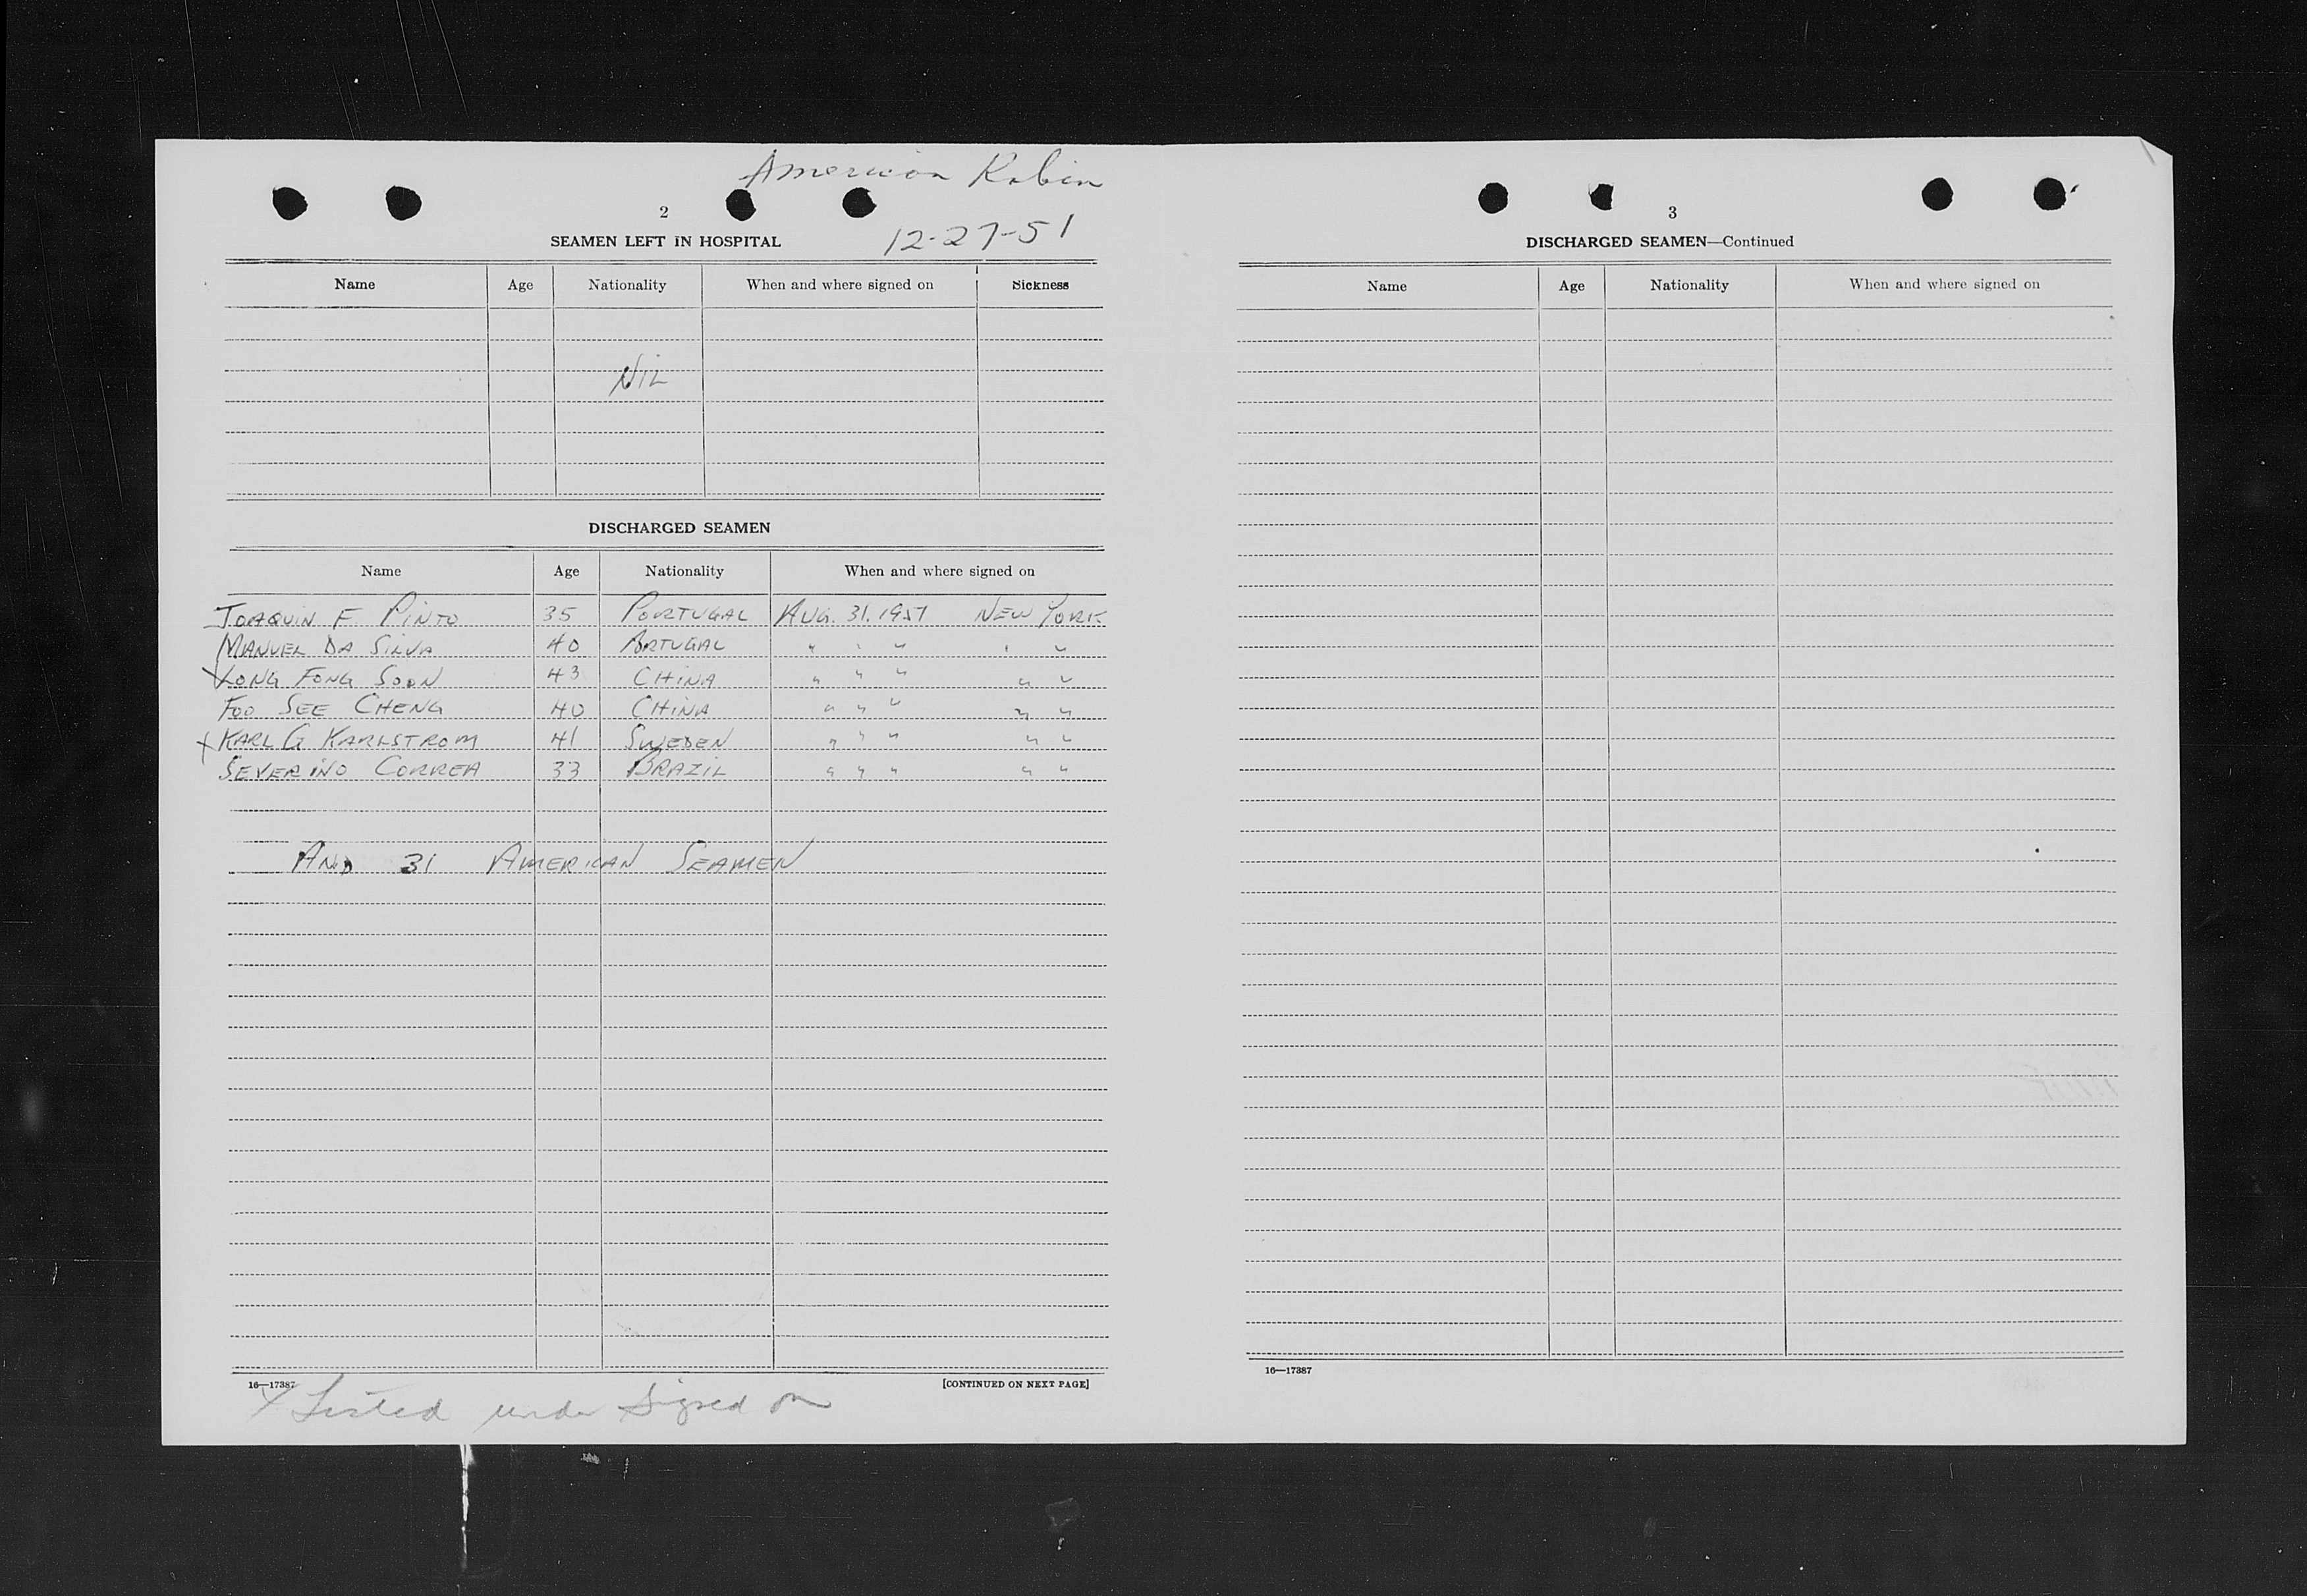 American Robin
2
12-27-51
SEAMEN LEFT IN HOSPITAL
Name Age Nationality When and where signed on Sickness
NIL
DISCHARGED SEAMEN
Name Age Nationality When and where signed on
JOAQUIN F PINTO 35 PORTUGAL AUG. 31. 1951 NEW YORK
MANUEL DA SILVA 40 PORTUGAL " " " " "
X LONG FONG SOON 43 CHINA " " " " "
FOO SEE CHENG 40 CHINA " " " " "
X KARL G KARLSTROM 41 SWEDEN " " " " "
SEVERINO CORREA 33 BRAZIL " " " " "
AND 31 AMERICAN SEAMEN
16—17387
[CONTINUED ON NEXT PAGE]
X Listed under Signed on
3
DISCHARGED SEAMEN—Continued
Name Age Nationality When and where signed on
16—17387